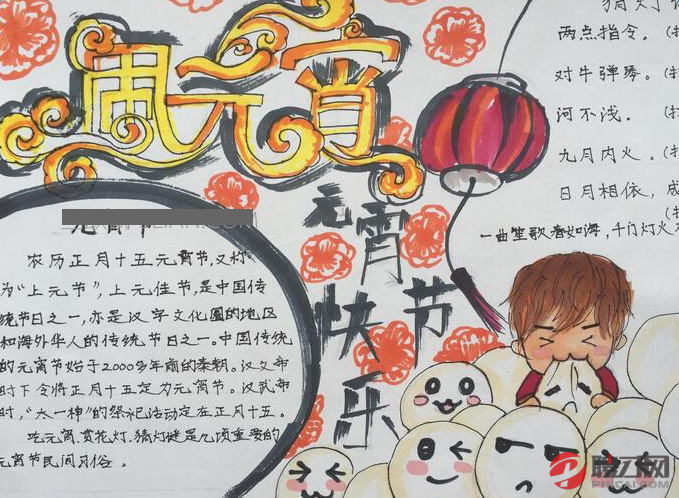 闹元宵
元宵节
快乐
农历正月十五元宵节,又称
为“上元节”,上元佳节,是中国传
统节日之一,亦是汉字文化圈的地区
和海外华人的传统节日之一。中国传统
的元宵节始于2000多年前的秦朝。汉文帝
时下令将正月十五定为元宵节。汉武帝
时,“太一神”的祭祀活动定在正月十五。
吃元宵、赏花灯、猜灯谜是几项重要的
元宵节民间习俗。
猜灯
两点指令。(打
对牛弹琴。(打
河不浅。(打
九月内火。(打
日月相依,成
(打
一曲笙歌春如海,千门灯火
PINCAI.COM